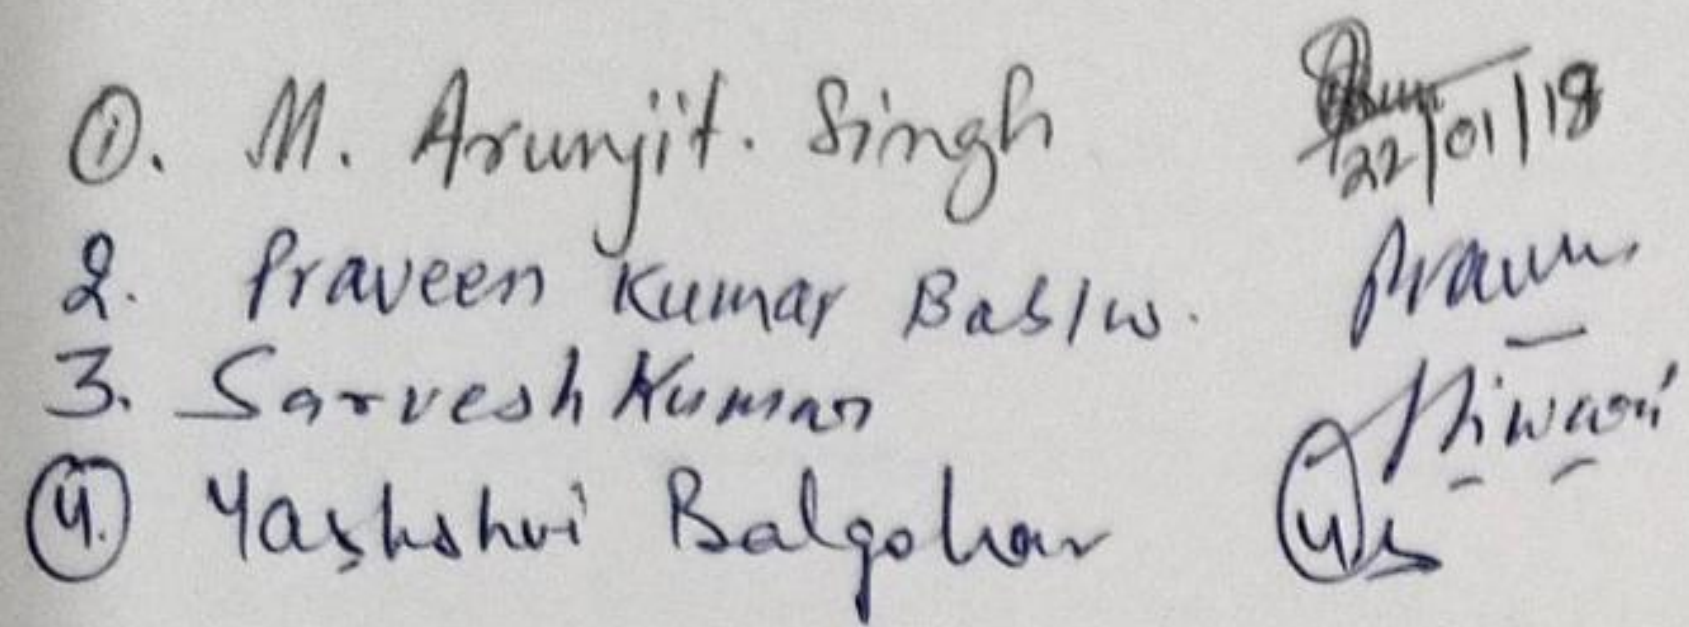 ①. M. Arunjit. Singh
22/01/18
2. Praveen Kumar
3. Sarvesh Kumar
④. Yashshvi Balgohar